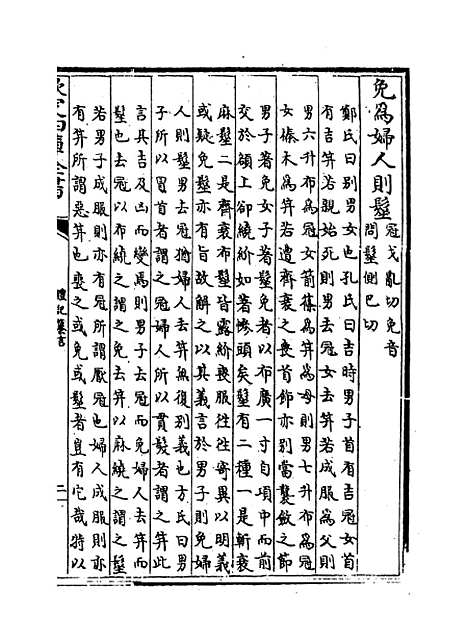 免為婦人則髽冠戈亂切免音
問髽側巴切
鄭氏曰别男女也孔氏曰吉時男子首有吉冠女首
有吉笄若親始死則男去冠女去笄若成服為父則
男六升布為冠女箭篠為笄為母則男七升布為冠
女榛木為笄若遭齊衰之喪首飾亦别當襲斂之節
男子著免女子著髽免者以布廣一寸自項中而前
交於額上卻繞紒如著幓頭矣髽有二種一是斬衰
麻髽二是齊衰布髽皆露紒喪服往往寄異以明義
或疑免髽亦有旨故解之以其義言於男子則免婦
人則髽男去冠猶婦人去笄無復别義也方氏曰男
子所以冒首者謂之冠婦人所以貫髪者謂之笄此
言其吉及凶而變焉則男子去冠而免婦人去笄而
髽也去冠以布繞之謂之免去笄以麻繞之謂之髽
若男子成服則亦有冠所謂厭冠也婦人成服則亦
有笄所謂惡笄也喪之或免或髽者豈有它哉特以
欽定四庫全書
禮記纂言
二